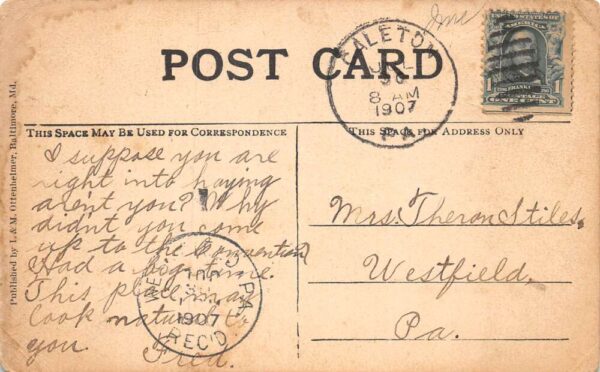 POST CARD
GALETON
JUL
30
8 AM
1907
PA
UNITED STATES OF AMERICA
FRANKLIN
POSTAGE
ONE CENT
THIS SPACE MAY BE USED FOR CORRESPONDENCE
THIS SPACE FOR ADDRESS ONLY
Published by I. & M. Ottenheimer, Baltimore, Md.
I suppose you are
right into haying
aren't you? Why
didnt you come
up to the Convention
Had a big time.
This place may
look natural to
you. Fred.
PA.
1907
REC'D
Mrs. Theron Stiles,
Westfield,
Pa.